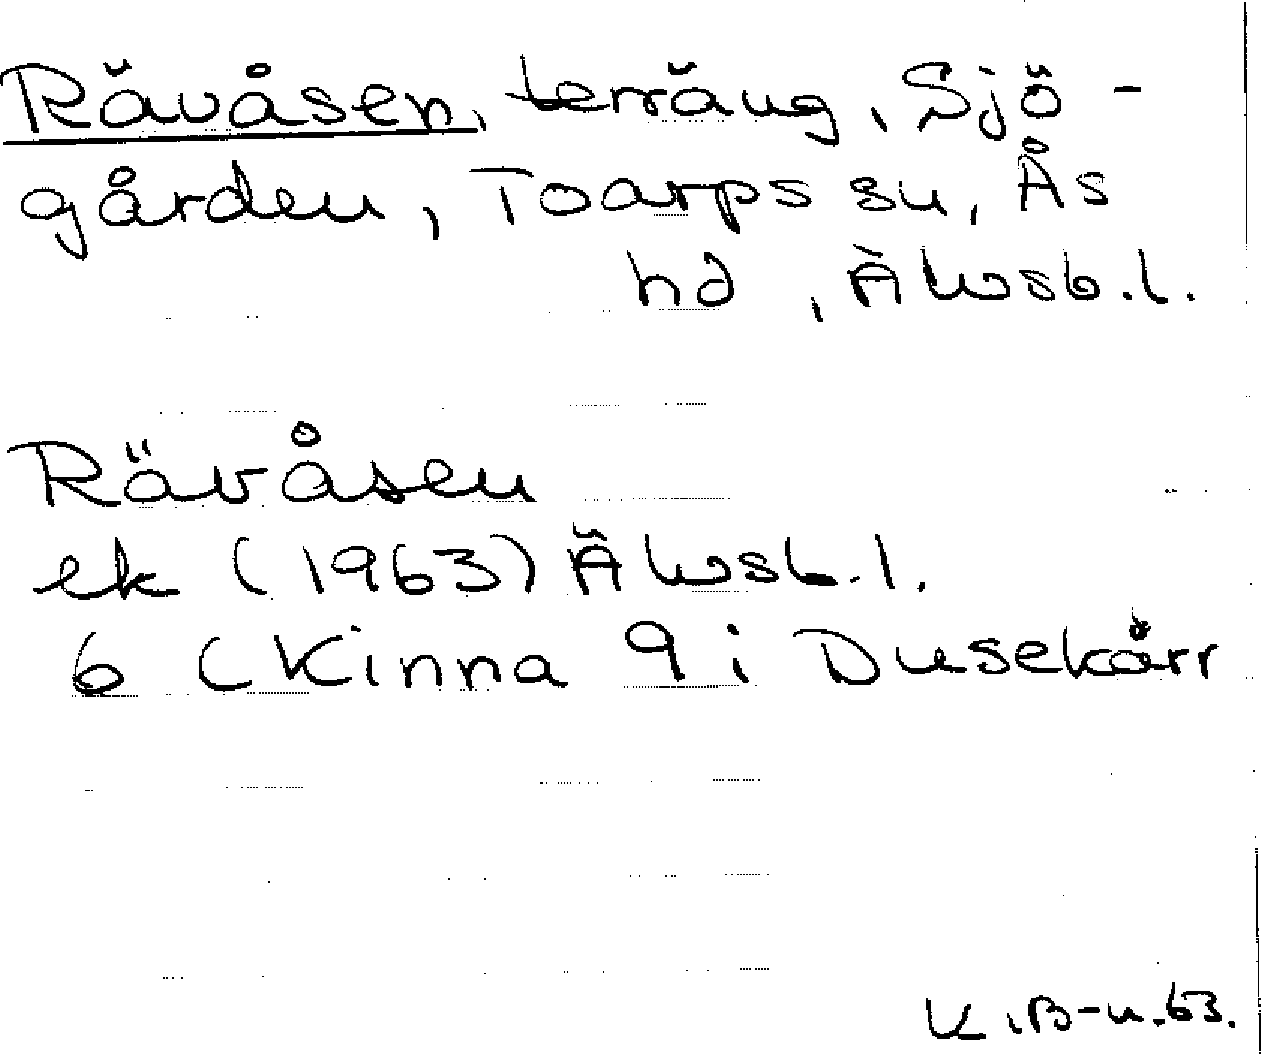 Rävåsen, terräng, Sjö-
gården, Toarps sn, Ås
hd, Älvsb.l.
Rävåsen
ek (1963) Älvsb.l.
6 (Kinna 9 i Dusekärr
K.B-n.63.